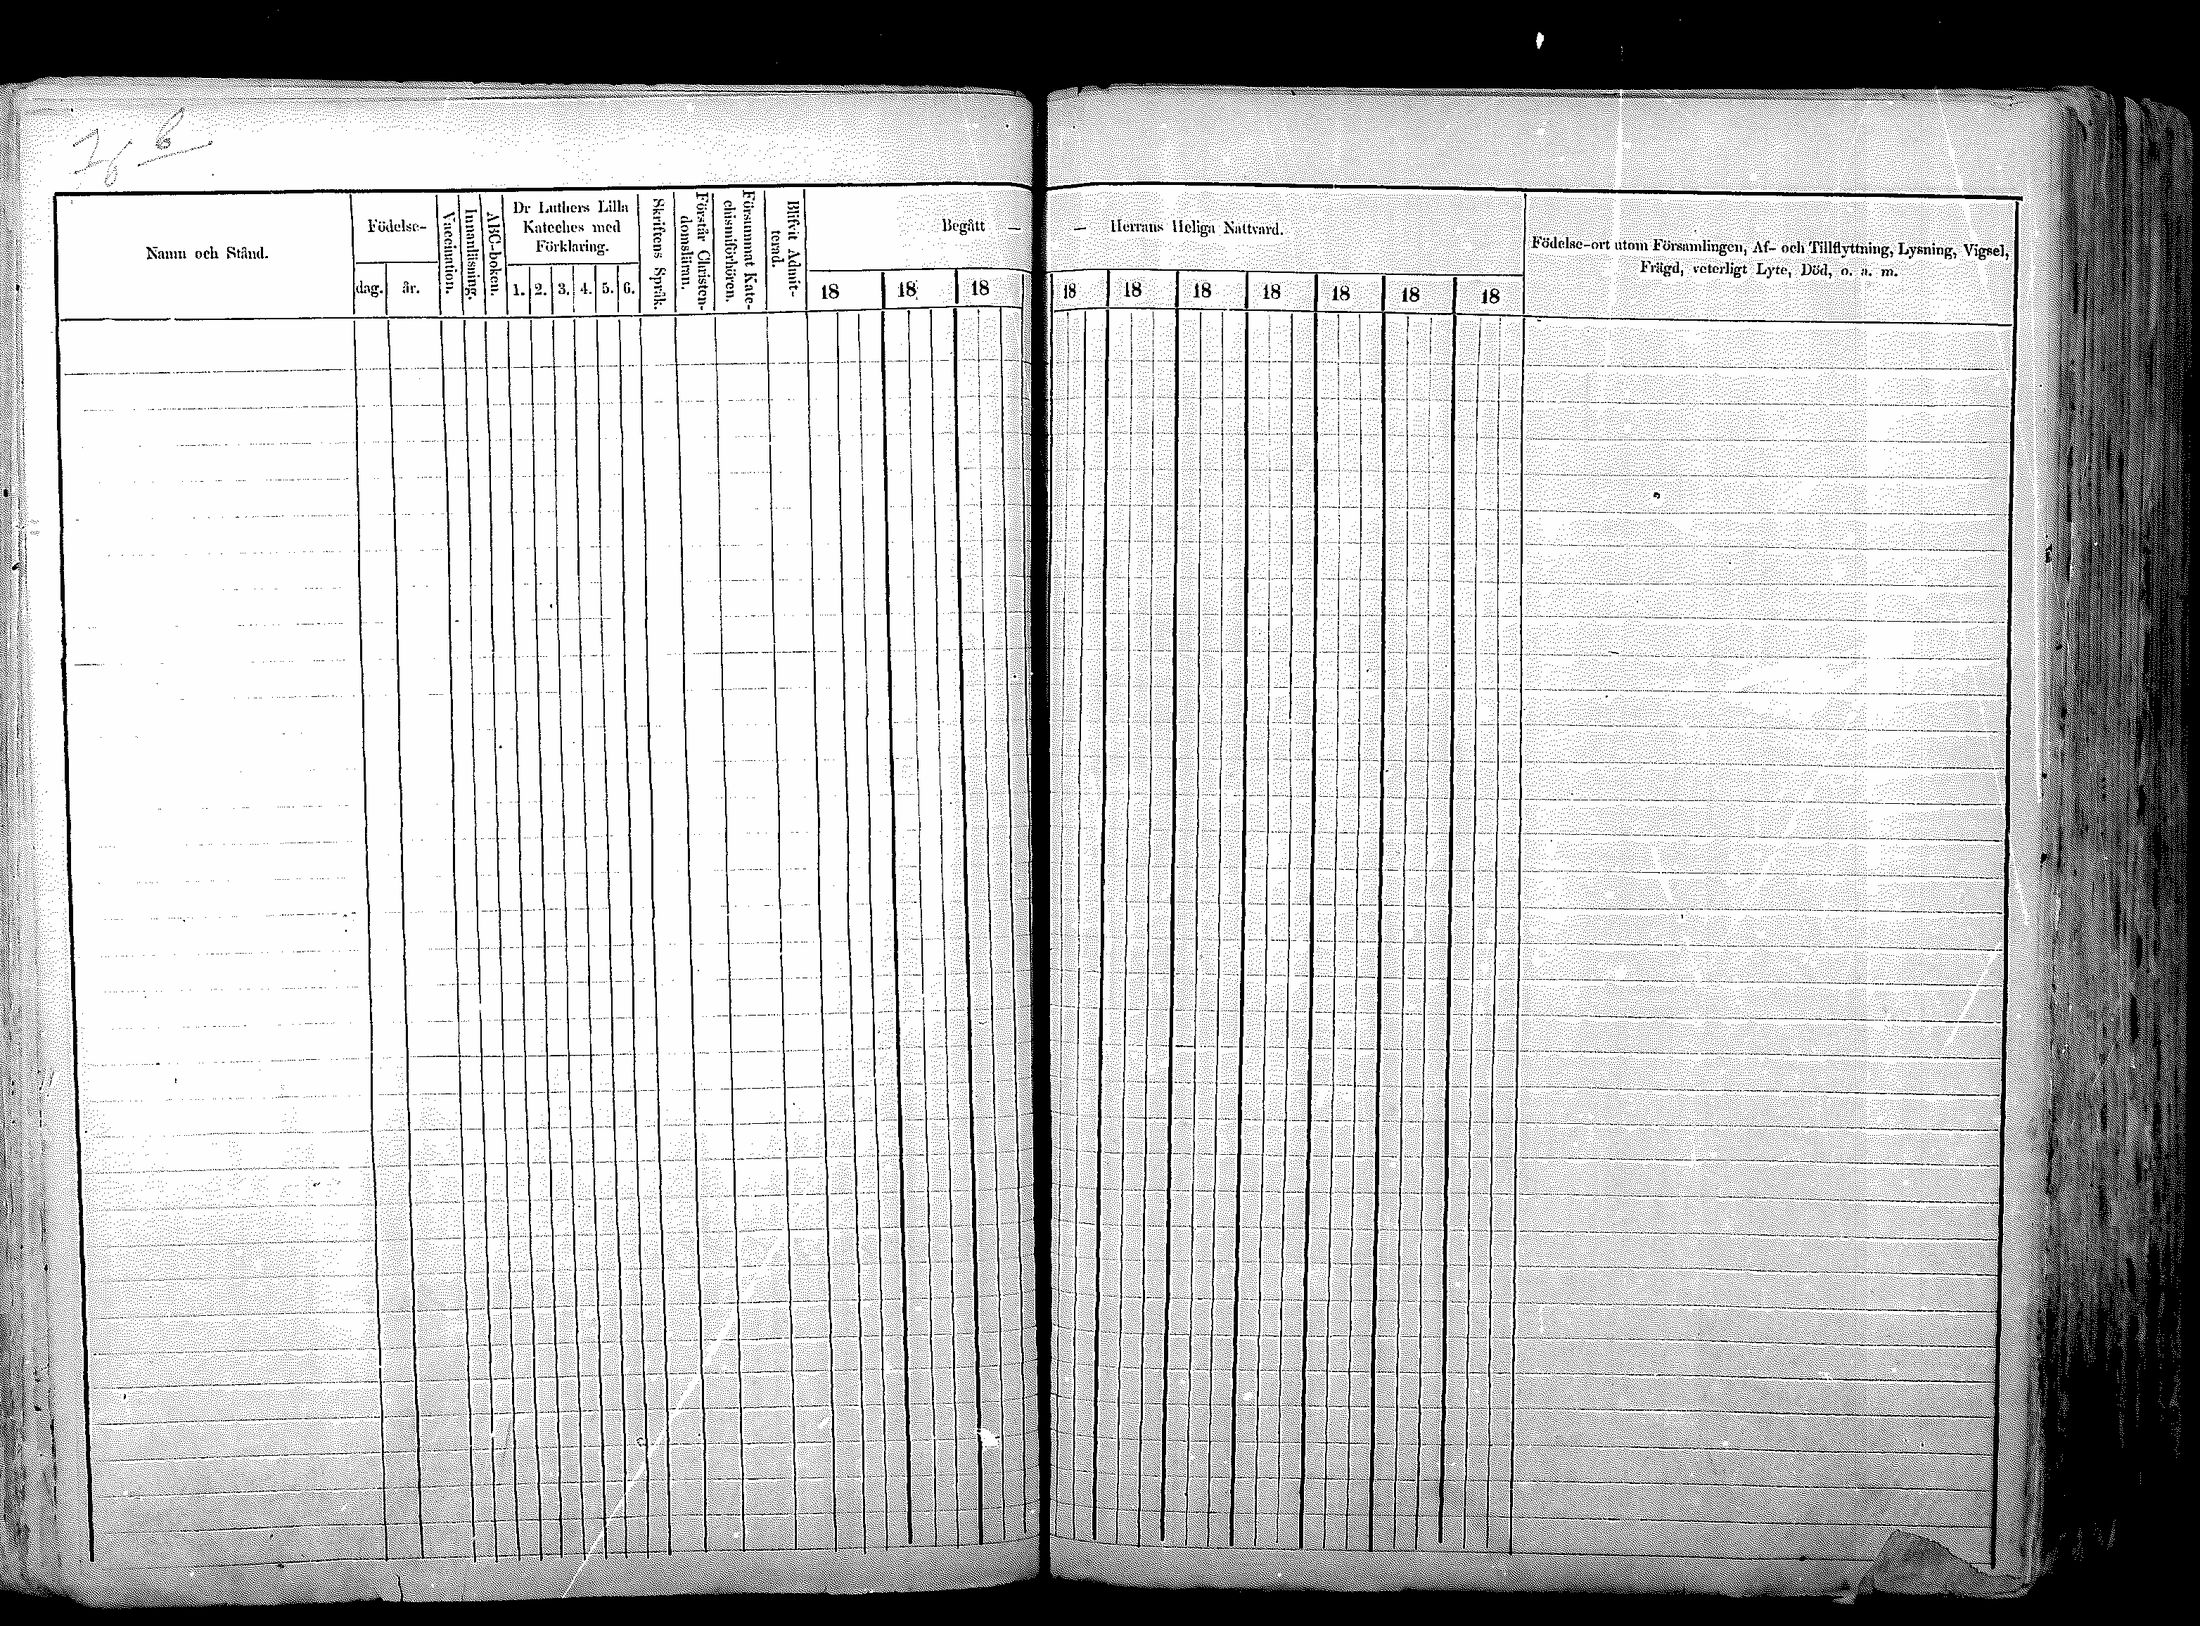 Namn och Stånd.
Födelse-
dag.
år.
Vaccination.
Innanläsning.
ABC-boken.
Dr Luthers Lilla
Kateches med
Förklaring.
1. 2. 3. 4. 5. 6.
Skriftens Språk.
Förstår Christen-
domsläran.
Försummat Kate-
chismiförhören.
Blifvit Admit-
terad.
Begått —
— Herrans Heliga Nattvard.
18 18 18 18 18 18 18 18 18 18
Födelse-ort utom Församlingen, Af- och Tillflyttning, Lysning, Vigsel,
Frägd, veterligt Lyte, Död, o. a. m.